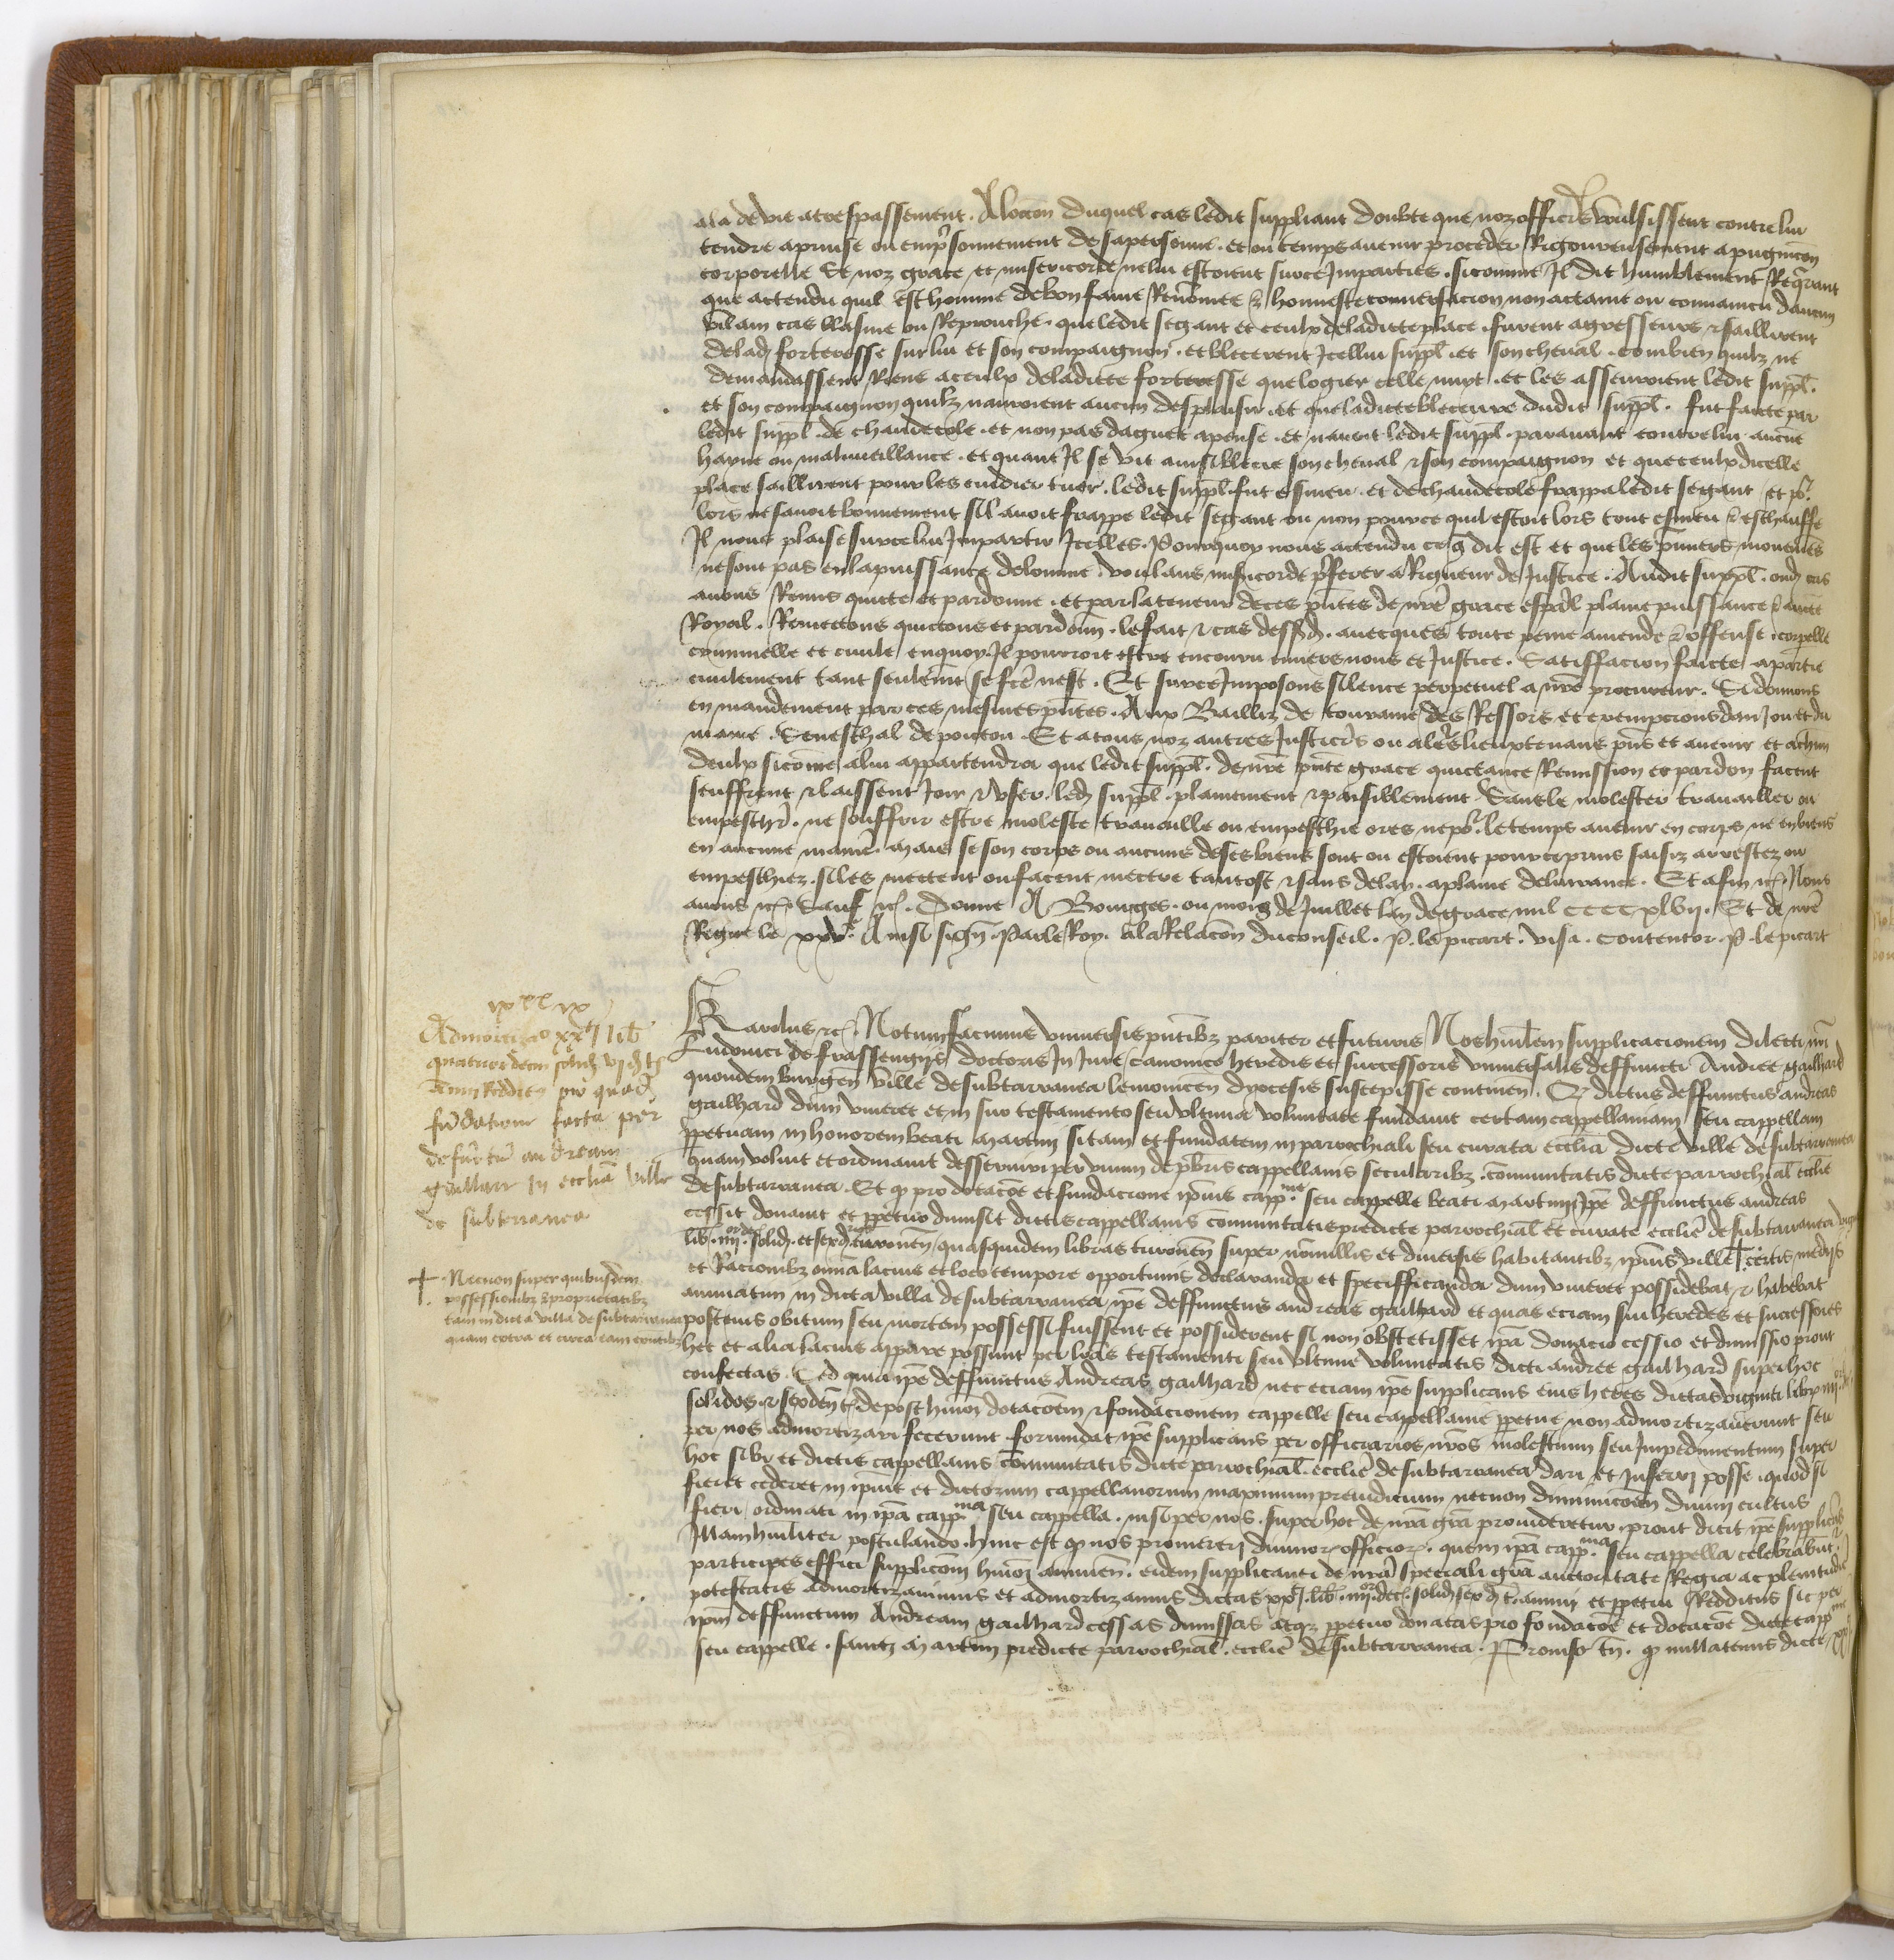 ala de vie a trespassement. A loccon duquel cas ledit suppliant doubte que noz officrs voulsissent contre lui
tendre a prinse ou emprsonnement de sa personne. et ou temps avenir proceder Rigoureusement a pugnicon
corporelle se noz grace et misericorde ne lui estoient sur ce Imparties. si comme Il dit humblement Requrant
que actendu quil est homme de bon fame Renommee & honneste conversacion non actaint ou convaincu daucun
villain cas blasme ou Reprouche. que ledit segant et ceulx de la dicte place furent agresseurs & saillirent
de lad forteresse sur lui et son compaignon. et blecerent Icellui suppl. et son cheval. combien quilz ne
demandassent Riens a ceulx de ladicte forteresse que logier celle nuyt. et les asseuroient ledit suppl.
et son compaignon quilz nauroient aucun desplaisir. et que ladicte bleceure dudit suppl. fut faicte par
ledit suppl. de chaudecole. et non pas daguet apense. et navoit ledit suppl. paravant contre lui aucune
hayne ou malvueillance. et quant Il se vit ainsi blecie son cheval & son compaignon et que ceulx dicelle
place saillirent pour les cuidier tuer. ledit suppl. fut esmeu. et de chaudecole frappa ledit segant et po.
lors ne savoit bonnement sil avoit frappe ledit segant ou non pource quil estoit lors tout esmeu & eschauffe
Il nous plaise sur ce lui Impartir Icelles. Pourquoy nous actendu ce q dit est et que les pmiers mouvems
ne sont pas en la puissance de lomme. voulans misericorde pferer a Rigueur de Justice. Audit suppl. oud cas
avons Remis quicte et pardonne. et par la teneur de ces pntes de nre grace espal plaine puissance & aucte
Royal. Remectons quictons et pardonn. le fait & cas dessd. avecques toute peine amende & offense corpelle
criminelle et civile en quoy Il pourroit estre encouru envers nous et Justice. Satiffacion faicte a partie
civilement tant seulemt se fce nest. Et sur ce Imposons silence perpetuel a nre procureur. Si donnons
en mandement par ces mesmes pntes. Aux Bailliz de touraine des Ressors et exempcions danjou et du
maine. Seneschal de poitou. Et a tous noz autres Justicrs ou a leurs lieuxtenans pns et avenir et a chun
deulx si comme a lui appartendra que ledit suppl. de nre pnte grace quictance Remission et pardon facent
seuffrent & laissent Joir & user led suppl. plainement & paisiblement Sans le molester travailler ou
empeschr. ne souffrir estre moleste travaille ou empeschie ores ne po. le temps avenir en corps ne en biens
en aucune manie. mais se son corps ou aucuns de ses biens sont ou estoient pource prins saisiz arrestez ou
empeschiez. si les mectent ou facent mectre tantost & sans delay. a plaine delivrance. Et afin &c. Nous
avons &c. Sauf &c. Donne A Bourges. ou mois de Juillet lan de grace mil cccc xlvii. Et de nre
Regne le xxve. Ainsi sign. Par le Roy. A la Relacon du conseil. P. le picart. visa. Contentor. P. le picart
Karolus &c. Notum facimus universis pntibz pariter et futuris Nos humilem supplicacionem dilecti nri
Ludovici de frassengiis doctoris In Jure canonico heredis et successoris universalis deffuncti Andree gailhard
quondem burgen ville de subtarranea lemonicen dyocesis suscepisse continen. Q dictus deffunctus andreas
gailhard dum viveret et in suo testamento seu ultima voluntate fundavit certam cappellaniam seu cappellam
ppetuam in honorem beati martini sitam et fundatem in parrochiali seu curata ecclia dicte ville de subtarranea
quam voluit et ordinavit desserviri per unum de pbris cappellanis secularibz. communitatis dicte parrochial ecclie
de subtarranea. Et q pro dotacoe et fundacione ipius capp.nie seu cappelle beati martini Ipe deffunctus andreas
cessit donavit et ppetuo dimisit dictis cappellanis communitatis predicte parrochial et curate ecclie de subtarranea viginti
lib. iiii.or dec. solid. et sex d. turonen. quasquidem libras turonen super nonnullis et diversis habitantibz ipius ville + certis mediis
et Racionibz omia lacius et loco tempore opportunis declaranda et speciffcanda dum viveret possidebat & habebat
annuatim in dicta villa de subtarranea ipe deffunctus andreas gailhard et quas eciam sui heredes et successores
post eius obitum seu mortem possessi fuissent et possiderent si non obstetisset ipa donacio cessio et dimissio prout
hec et alia lacius appare possunt per lras testamenti seu ultime voluntatis dicti andree gailhard super hoc
confectas. Sed quia ipe deffunctus Andreas gailhard nec eciam ipe supplicans eius heres dictas viginti libras iiii.or dec
solidos. & sex den. t. depost humoi dotacoem & fondacionem cappelle seu cappellanie ppetue non admortizaverunt seu
per nos admortizari fecerunt formidat ipe supplicans per officiarios nros molestiam seu Impedimentum super
hoc sibi et dictis cappellanis communitatis dicte parrochial. ecclie de subtarranea dari et Inferri posse. quod si
fieret cederet in ipius et dictorum cappellanorum maximum preiudicium necnon diminucoem divini cultus
fieri ordinati in ipa capp.nia seu cappella. nisi per nos. super hoc de nra gra provideretur. prout dicit ipe supplicans
Illam humiliter postulando. hinc est q nos promereri divinor. officior. quem ipa capp.nia seu cappella celebrabunt.
participes effici supplicaom humoi annuen. eidem supplicanti de nra speciali gra auctoritate Regia ac plenitudie
potestatis admortizavimus et admortizamus dictas xx.ti lib. iiii.or dec. solid sex d. t. annui et ppetui Redditus sic per
ipm deffunctum Andream gailhard cessas dimissas atqz ppetuo donatas pro fondacoe et dotacoe dicte capp.nie
seu cappelle. sancti martini predicte parrochial. ecclie de subtarranea. Proviso tn. q nullatenus dicte
ixxx ix
Admortizao xxti lib
quatuordecim solid vi d t
Annui Redditus pro quad
fundatione facta per
defunctu andream
gaillart In ecclia ville
de subterranea
+ Necnon super quibusdem
possessionibz & proprietatibz
tam in dicta villa de subtarranea
quam extra et circa eam